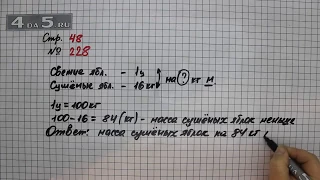 4DA5.RU
Стр. 48
№ 228
Свежие ябл. - 1ц
Сушёные ябл. - 16кг на ? кг м
1ц = 100кг
100 - 16 = 84 (кг) - масса сушёных яблок меньше
Ответ: масса сушёных яблок на 84 кг